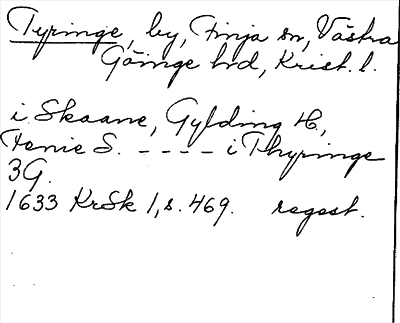 Tyringe, by, Finja sn, Västra
Göinge hrd, Krist. l.
i Skaane, Gylding H.,
Fenie S. - - - - i Thyringe
3G.
1633 KrSk 1, s. 469. regest.